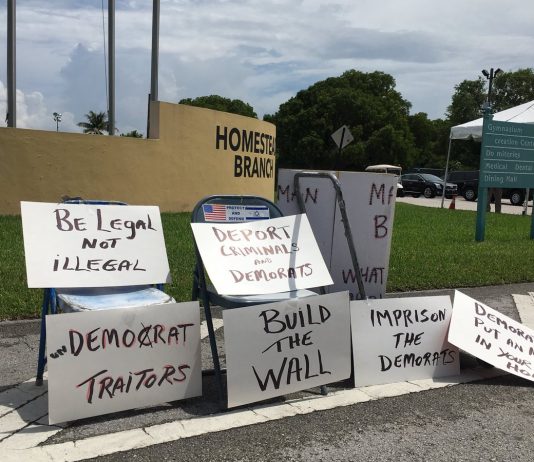 HOMESTEA
BRANCH
Gymnasium
creation Cente
Do mitories
Medical Dental
Dining Hall
MAN
MA
B
WHAT
BE LEGAL
NOT
ILLEGAL
PROTECT AND DEFEND
DEPORT
CRIMINALS
AND
DEMORATS
unDEMOCRAT
TRAITORS
BUILD
THE
WALL
IMPRISON
THE
DEMORATS
DEMORA
PUT AN
IN YOUR
HO